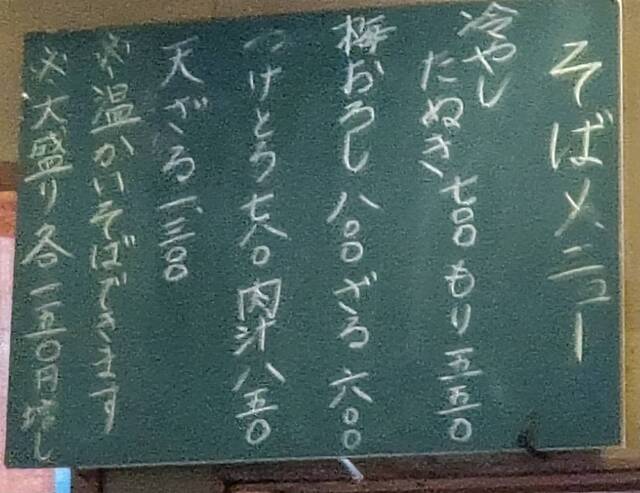 そばメニュー
冷やし
たぬき 七〇〇 もり 五五〇
梅おろし 八〇〇 ざる 六〇〇
つけとろ 七八〇 肉汁 八五〇
天ざる 一、三〇〇
※温かいそばできます
※大盛り各一五〇円増し